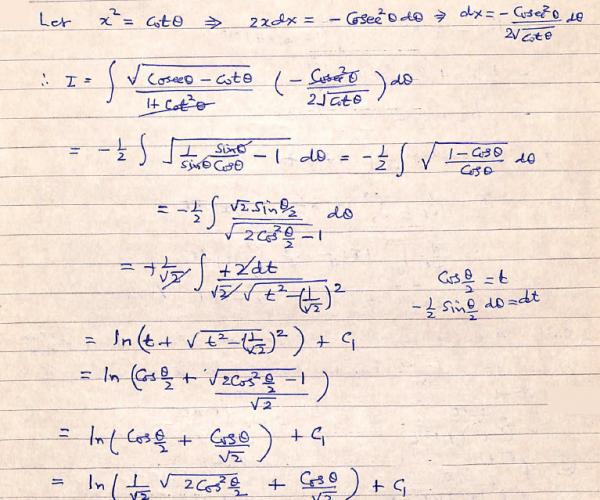 Let x² = cotθ ⇒ 2xdx = -cosec²θ dθ ⇒ dx = -cosec²θ/2√cotθ dθ
∴ I = ∫ √(cosecθ - cotθ)/(1+cot²θ) (-cosec²θ/2√cotθ) dθ
= -1/2 ∫ √(1/sinθ sinθ/cosθ - 1) dθ = -1/2 ∫ √((1-cosθ)/cosθ) dθ
= -1/2 ∫ √2 sin θ/2 / √(2cos² θ/2 - 1) dθ
= +1/√2 ∫ +2dt / √2 √(t² - (1/√2)²) cos θ/2 = t
-1/2 sin θ/2 dθ = dt
= ln(t + √(t² - (1/√2)²)) + C₁
= ln(cos θ/2 + √(2cos² θ/2 - 1)/√2)
= ln(cos θ/2 + cosθ/√2) + C₁
= ln(1/√2 √(2cos² θ/2) + cosθ/√2) + C₁